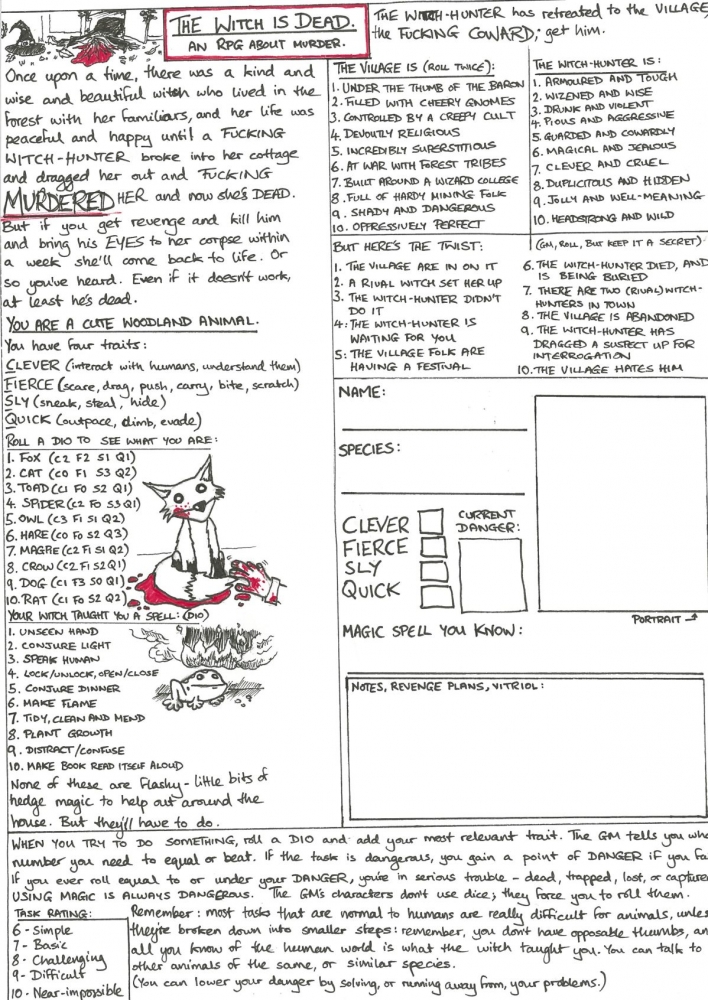 THE WITCH IS DEAD.
AN RPG ABOUT MURDER.
Once upon a time, there was a kind and
wise and beautiful witch who lived in the
forest with her familiars, and her life was
peaceful and happy until a FUCKING
WITCH-HUNTER broke into her cottage
and dragged her out and FUCKING
MURDERED HER and now she's DEAD.
But if you get revenge and kill him
and bring his EYES to her corpse within
a week she'll come back to life. Or
so you've heard. Even if it doesn't work,
at least he's dead.
YOU ARE A CUTE WOODLAND ANIMAL.
You have four traits:
CLEVER (interact with humans, understand them)
FIERCE (scare, drag, push, carry, bite, scratch)
SLY (sneak, steal, hide)
QUICK (outpace, climb, evade)
ROLL A D10 TO SEE WHAT YOU ARE:
1. FOX (C2 F2 S1 Q1)
2. CAT (C0 F1 S3 Q2)
3. TOAD (C1 F0 S2 Q1)
4. SPIDER (C2 F0 S3 Q1)
5. OWL (C3 F1 S1 Q2)
6. HARE (C0 F0 S2 Q3)
7. MAGPIE (C2 F1 S1 Q2)
8. CROW (C2 F1 S2 Q1)
9. DOG (C1 F3 S0 Q1)
10. RAT (C1 F0 S2 Q2)
YOUR WITCH TAUGHT YOU A SPELL: (D10)
1. UNSEEN HAND
2. CONJURE LIGHT
3. SPEAK HUMAN
4. LOCK/UNLOCK, OPEN/CLOSE
5. CONJURE DINNER
6. MAKE FLAME
7. TIDY, CLEAN AND MEND
8. PLANT GROWTH
9. DISTRACT/CONFUSE
10. MAKE BOOK READ ITSELF ALOUD
None of these are flashy - little bits of
hedge magic to help out around the
house. But they'll have to do.
THE WITCH-HUNTER has retreated to the VILLAGE,
the FUCKING COWARD; get him.
THE VILLAGE IS (ROLL TWICE):
1. UNDER THE THUMB OF THE BARON
2. FILLED WITH CHEERY GNOMES
3. CONTROLLED BY A CREEPY CULT
4. DEVOUTLY RELIGIOUS
5. INCREDIBLY SUPERSTITIOUS
6. AT WAR WITH FOREST TRIBES
7. BUILT AROUND A WIZARD COLLEGE
8. FULL OF HARDY MINING FOLK
9. SHADY AND DANGEROUS
10. OPPRESSIVELY PERFECT
THE WITCH-HUNTER IS:
1. ARMOURED AND TOUGH
2. WIZENED AND WISE
3. DRUNK AND VIOLENT
4. PIOUS AND AGGRESSIVE
5. GUARDED AND COWARDLY
6. MAGICAL AND JEALOUS
7. CLEVER AND CRUEL
8. DUPLICITOUS AND HIDDEN
9. JOLLY AND WELL-MEANING
10. HEADSTRONG AND WILD
BUT HERE'S THE TWIST: (GM, ROLL, BUT KEEP IT A SECRET)
1. THE VILLAGE ARE IN ON IT
2. A RIVAL WITCH SET HER UP
3. THE WITCH-HUNTER DIDN'T
DO IT
4: THE WITCH-HUNTER IS
WAITING FOR YOU
5: THE VILLAGE FOLK ARE
HAVING A FESTIVAL
6. THE WITCH-HUNTER DIED, AND
IS BEING BURIED
7. THERE ARE TWO (RIVAL) WITCH-
HUNTERS IN TOWN
8. THE VILLAGE IS ABANDONED
9. THE WITCH-HUNTER HAS
DRAGGED A SUSPECT UP FOR
INTERROGATION
10. THE VILLAGE HATES HIM
NAME:
SPECIES:
CLEVER
FIERCE
SLY
QUICK
CURRENT
DANGER:
PORTRAIT
MAGIC SPELL YOU KNOW:
NOTES, REVENGE PLANS, VITRIOL:
WHEN YOU TRY TO DO SOMETHING, roll a D10 and add your most relevant trait. The GM tells you wha
number you need to equal or beat. If the task is dangerous, you gain a point of DANGER if you fa
If you ever roll equal to or under your DANGER, you're in serious trouble - dead, trapped, lost, or capture
USING MAGIC IS ALWAYS DANGEROUS. The GM's characters don't use dice; they force you to roll them.
TASK RATING:
6 - Simple
7 - Basic
8 - Challenging
9 - Difficult
10 - Near-impossible
Remember: most tasks that are normal to humans are really difficult for animals, unles
they're broken down into smaller steps: remember, you don't have opposable thumbs, an
all you know of the human world is what the witch taught you. You can talk to
other animals of the same, or similar species.
(You can lower your danger by solving, or running away from, your problems.)